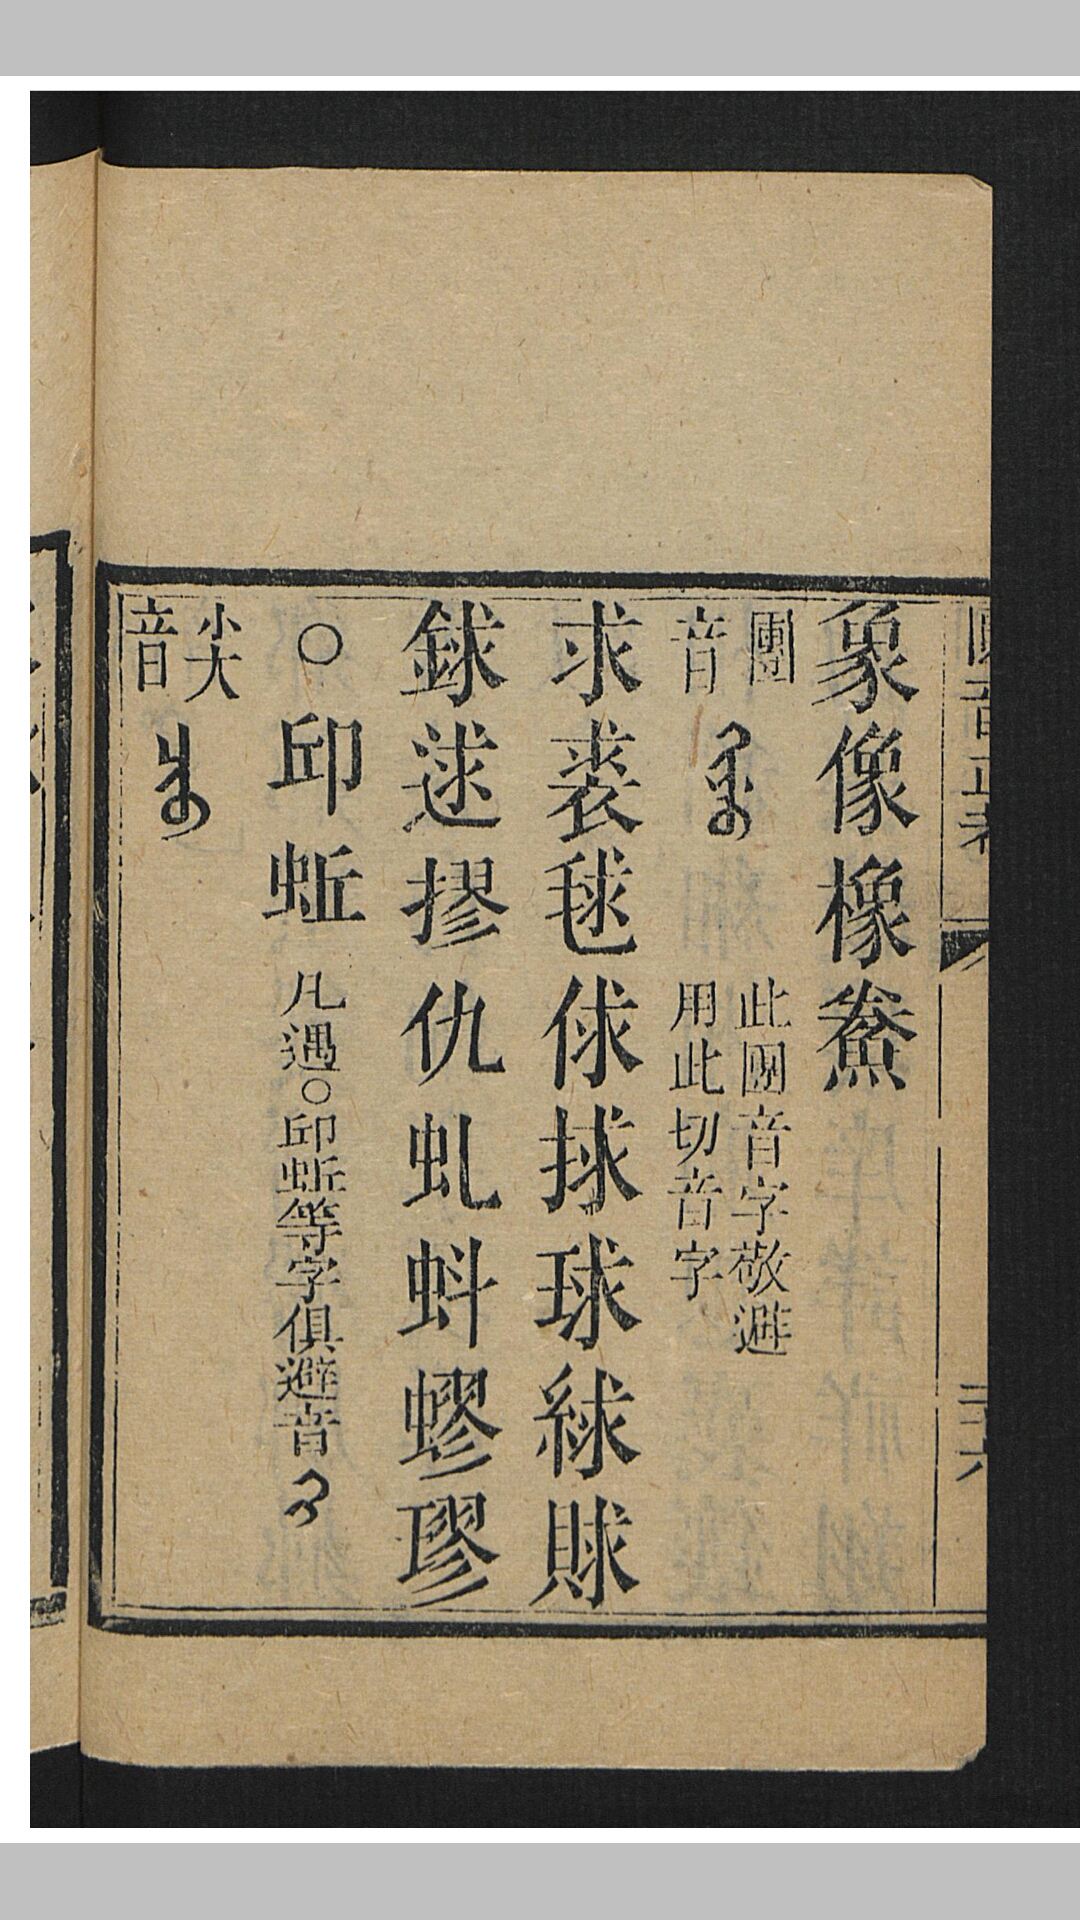 象像橡鮝
團音 ᡴᡳᠣ 此團音字敬避用此切音字
求裘毬俅捄球絿賕
銶逑摎仇虬蚪蟉璆
○邱蚯 凡遇○邱蚯等字俱避音
尖音